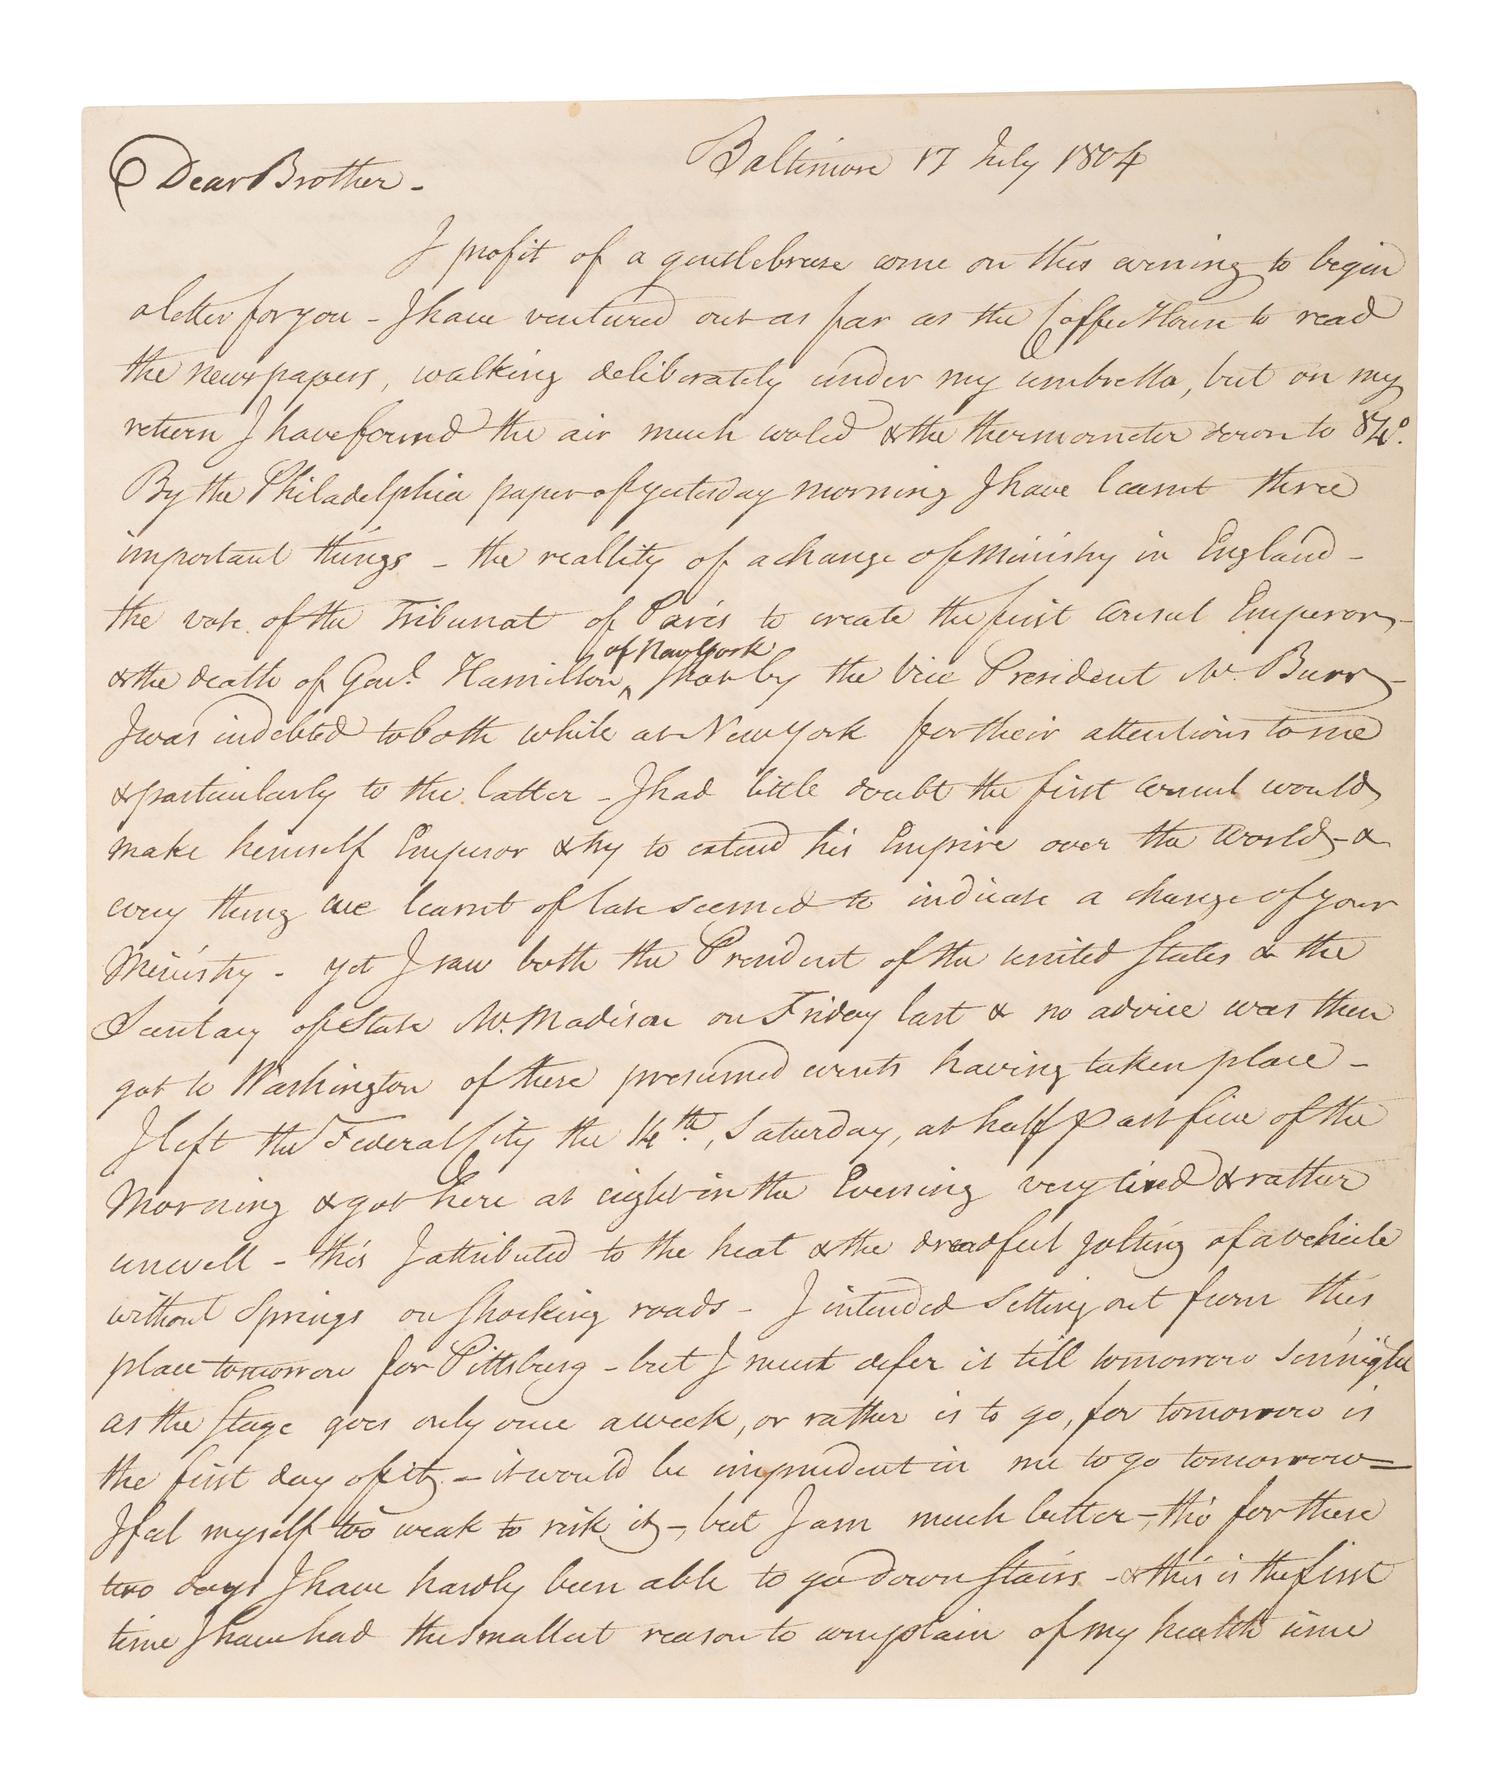 Baltimore 17 July 1804
Dear Brother -
I profit of a gentle breeze come on this evening to begin
a letter for you - I have ventured out as far as the Coffee House to read
the newspapers, walking deliberately under my umbrella, but on my
return I have found the air much cooled & the thermometer down to 84°.
By the Philadelphia paper of yesterday morning I have learnt three
important things - the reallity of a change of Ministry in England -
the vote of the Tribunat of Paris to create the first Consul Emperor, -
of New York
& the death of Genl. Hamilton, ^ shot by the Vice President Mr. Burr, -
I was indebted to both while at New York for their attentions to me
& particularly to the latter - I had little doubt the first Consul would
make himself Emperor & try to extend his Empire over the World, - &
every thing we learnt of late seemed to indicate a change of your
Ministry - yet I saw both the President of the United States & the
Secretary of State Mr. Madison on Friday last & no advice was then
got to Washington of these presumed events having taken place -
I left the Federal City the 14th., Saturday, at half past five of the
Morning & got here at eight in the Evening very tired & rather
unwell - this I attributed to the heat & the dreadful jolting of a vehicle
without Springs on shocking roads - I intended setting out from this
place tomorrow for Pittsburg - but I must defer it till tomorrow Sennight
as the Stage goes only once a week, or rather is to go, for tomorrow is
the first day of it, - it would be imprudent in me to go tomorrow =
I feel myself too weak to risk it, - but I am much better -, tho' for these
two days I have hardly been able to go down Stairs - & this is the first
time I have had the smallest reason to complain of my health since